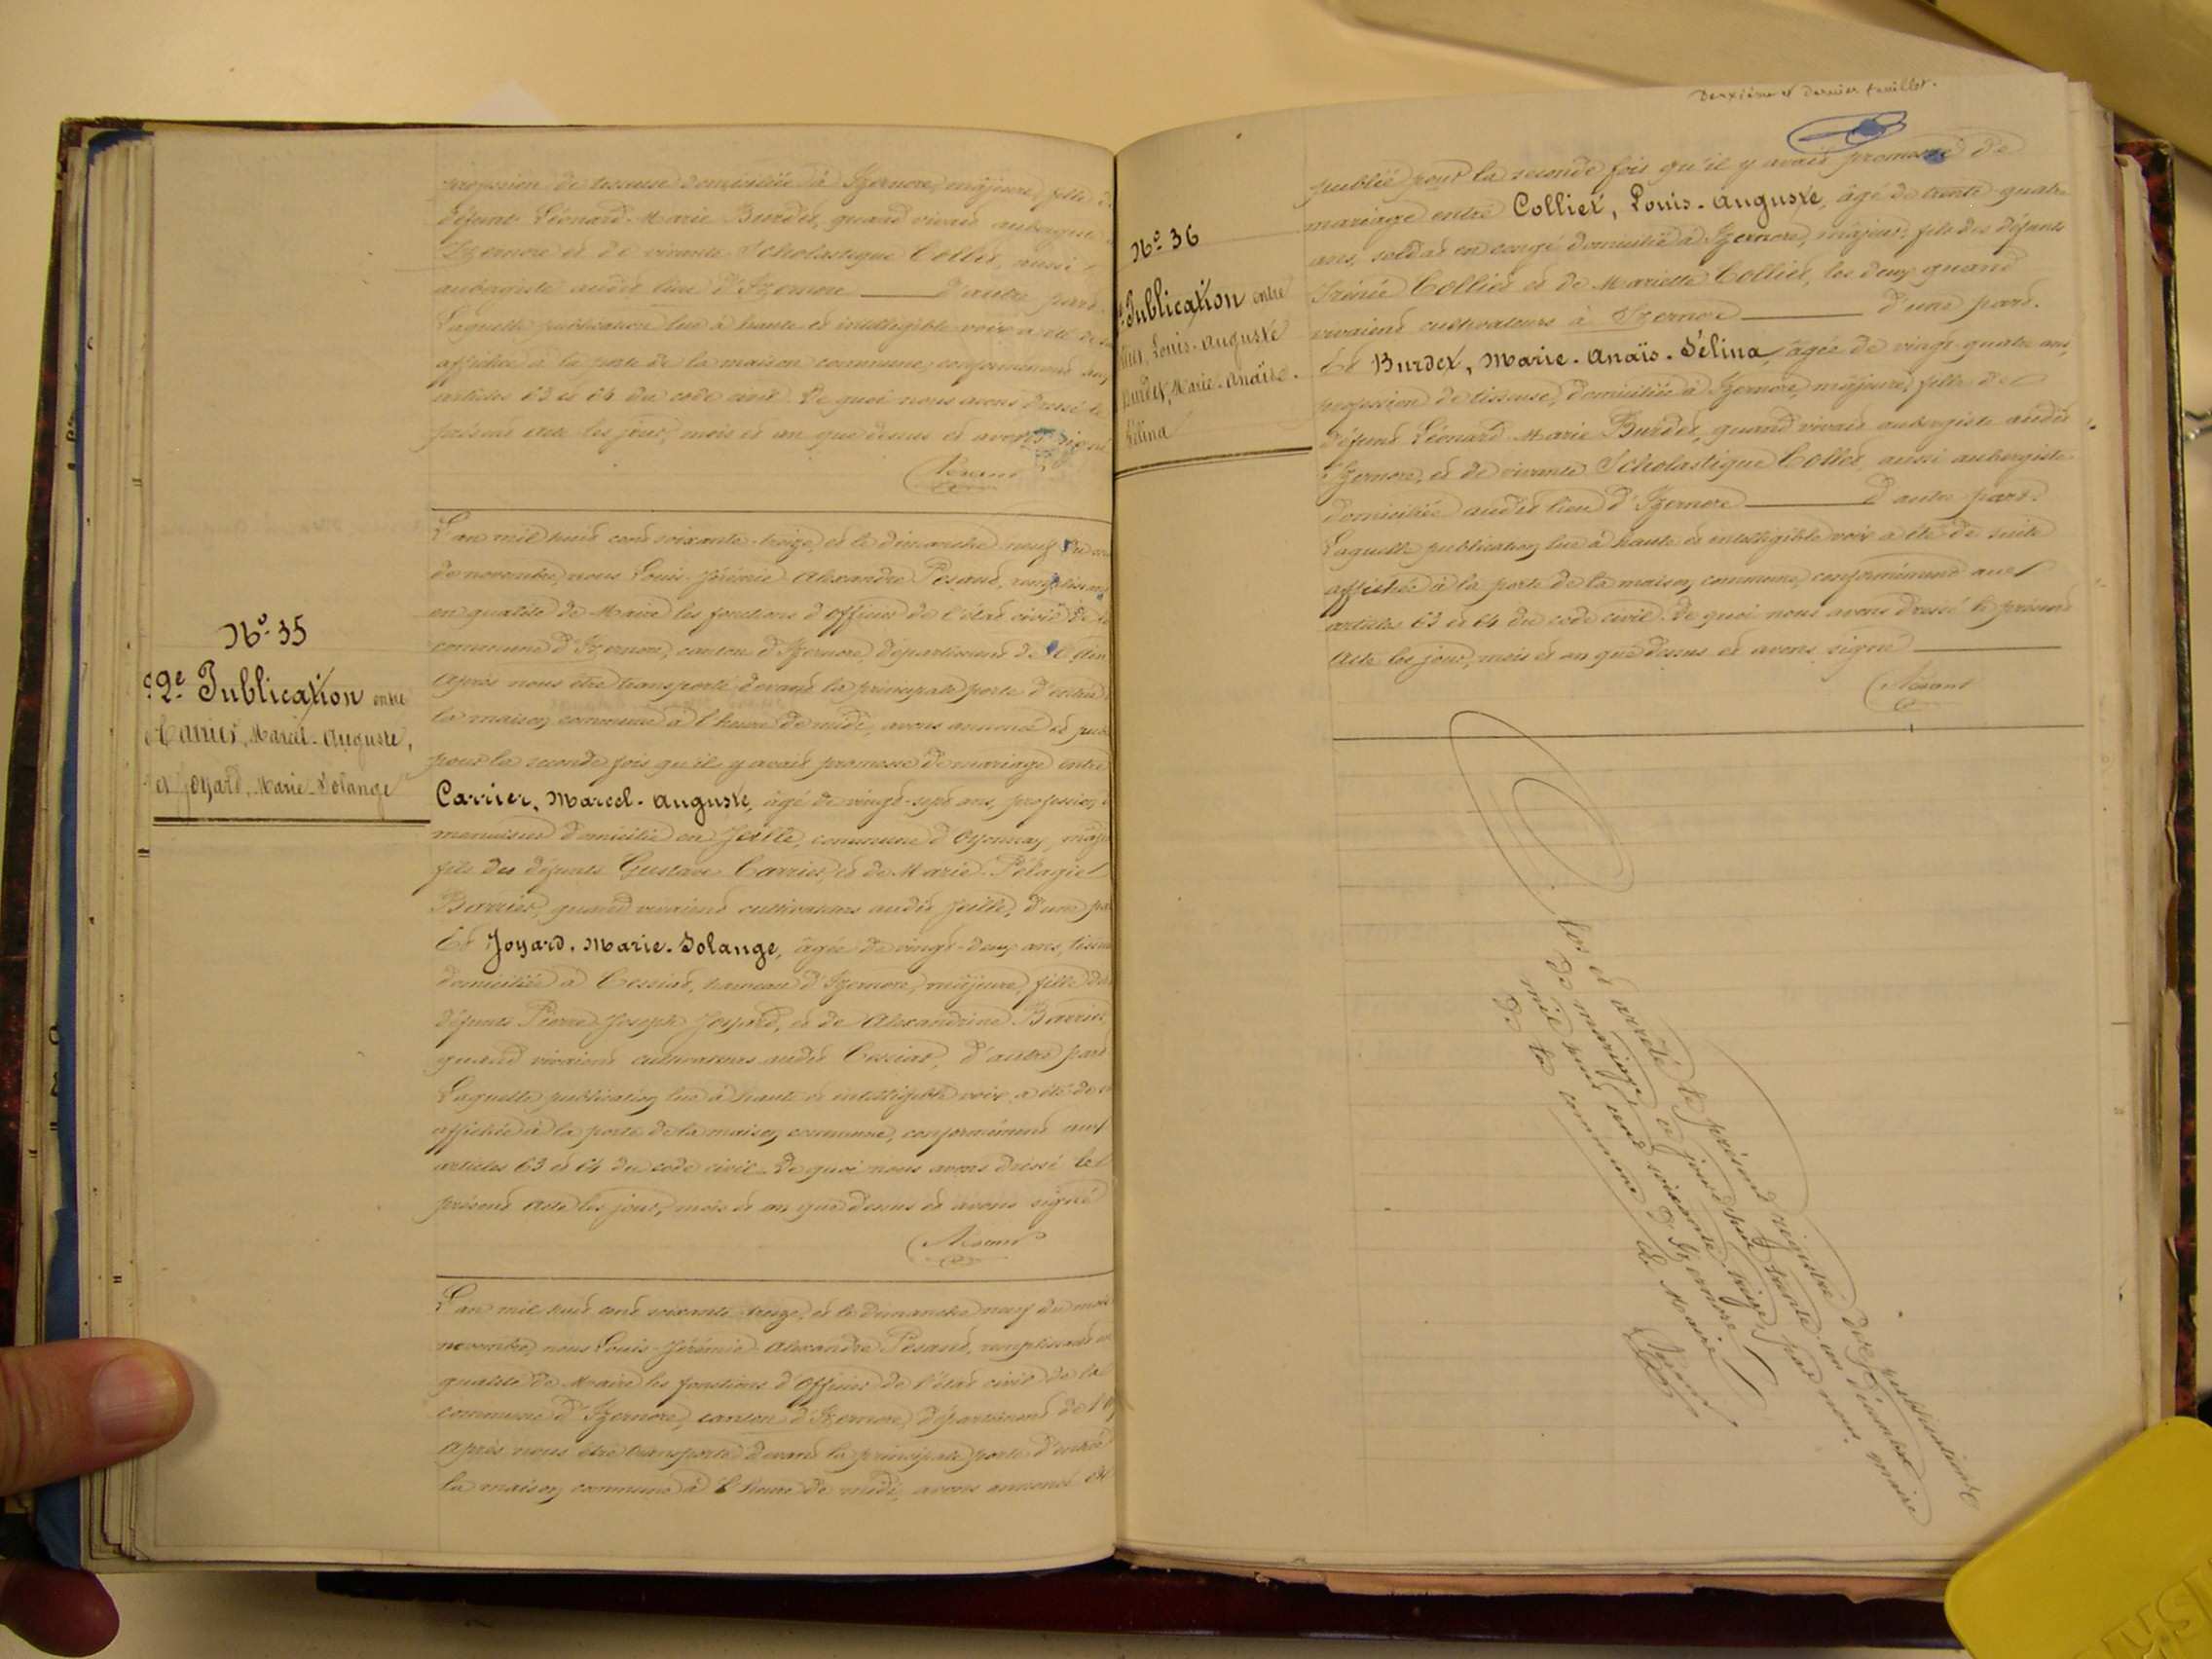 profession de tisseuse domiciliée à Izernore, majeure, fille de
défunt Léonard-Marie Burdet, quand vivait aubergiste à
Izernore et de vivante Scholastique Collet, aussi
aubergiste audit lieu d'Izernore d'autre part.
Laquelle publication lue à haute et intelligible voix a été de
affichée à la porte de la maison commune, conformément aux
articles 63 et 64 du code civil. De quoi nous avons dressé le
présent acte les jour, mois et an que dessus et avons signé
L'an mil huit cent soixante-treize, et le dimanche neuf du mois
de novembre, nous Louis-Jérémie Alexandre Pesant, remplissant
en qualité de Maire les fonctions d'officier de l'état civil de la
commune d'Izernore, canton d'Izernore, département de l'Ain
Après nous être transporté devant la principale porte d'entrée
la maison commune à l'heure de midi, avons annoncé et publié
pour la seconde fois qu'il y avait promesse de mariage entre
Nº 35
2e Publication entre
Carrier, Marcel-Auguste,
et Joyard, Marie-Solange
Carrier, Marcel-Auguste, âgé de vingt-sept ans, profession
menuisier domicilié en Jeille, commune d'Oyonnax, majeur
fils des défunts Gustave Carrier, et de Marie-Pélagie
Barrier, quand vivaient cultivateurs audit Jeille, d'une part
Et Joyard, Marie-Solange, âgée de vingt-deux ans,
domiciliée à Cessiat, hameau d'Izernore, majeure, fille des
défunts Pierre-Joseph Joyard, et de Alexandrine Barrier
quand vivaient cultivateurs audit Cessiat, d'autre part
Laquelle publication lue à haute et intelligible voix a été de
affichée à la porte de la maison commune, conformément aux
articles 63 et 64 du code civil. De quoi nous avons dressé le
présent acte les jour, mois et an que dessus et avons signé
L'an mil huit cent soixante-treize, et le dimanche neuf du mois
novembre, nous Louis-Jérémie Alexandre Pesant, remplissant en
qualité de Maire les fonctions d'officier de l'état civil de la
commune d'Izernore, canton d'Izernore, département de l'
Après nous être transporté devant la principale porte d'entrée
la maison commune à l'heure de midi, avons annoncé et
Deuxième et dernier feuillet.
Nº 36
Publication entre
Louis-Auguste
Burdet, Marie-Anaïs-
Sélina
publié pour la seconde fois qu'il y avait promesse de
mariage entre Colliet, Louis-Auguste, âgé de trente-quatre
ans, soldat en congé domicilié à Izernore, majeur, fils des défunts
Irénée Colliet et de Mariette Colliet, les deux quand
vivaient cultivateurs à Izernore d'une part.
Et Burdet, Marie-Anaïs-Sélina, âgée de vingt-quatre ans,
profession de tisseuse, domiciliée à Izernore, majeure, fille de
défunt Léonard-Marie Burdet, quand vivait aubergiste audit
Izernore, et de vivante Scholastique Collet, aussi aubergiste
domiciliée audit lieu d'Izernore d'autre part.
Laquelle publication lue à haute et intelligible voix a été de suite
affichée à la porte de la maison commune, conformément aux
articles 63 et 64 du code civil. De quoi nous avons dressé le présent
Acte les jour, mois et an que dessus et avons signé
Clos et arrêté le présent registre des publications
de mariage, ce jourd'hui trente un décembre
mil huit cent soixante treize, par nous, maire
de la commune d'Izernore
Le Maire